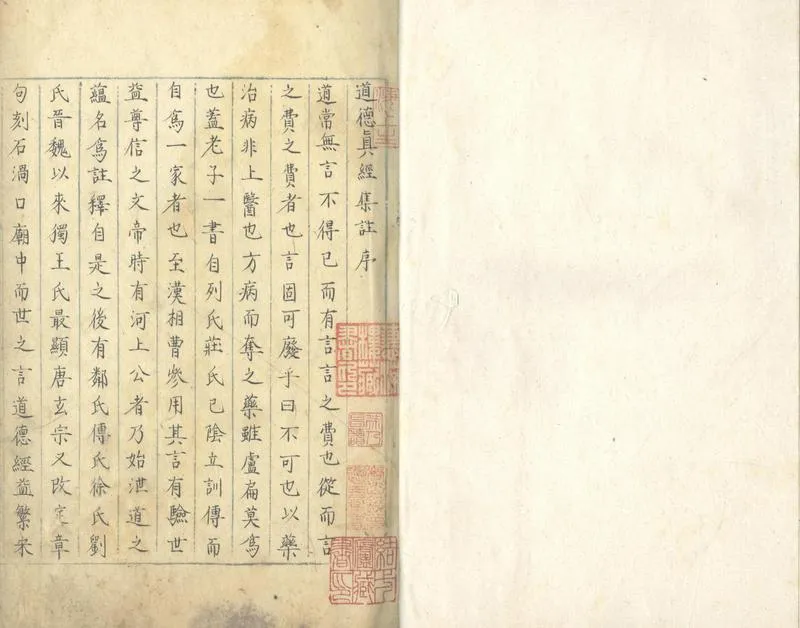 道德眞經集註序
道常無言不得已而有言言之費也從而言
之費之費者也言固可廢乎曰不可也以藥
治病非上醫也方病而奪之藥雖盧扁莫爲
也蓋老子一書自列氏莊氏已陰立訓傳而
自爲一家者也至漢相曹參用其言有驗世
益尊信之文帝時有河上公者乃始泄道之
蘊名爲註釋自是之後有鄰氏傳氏徐氏劉
氏晉魏以來獨王氏最顯唐玄宗又改定章
句刻石渦口廟中而世之言道德經益繁宋